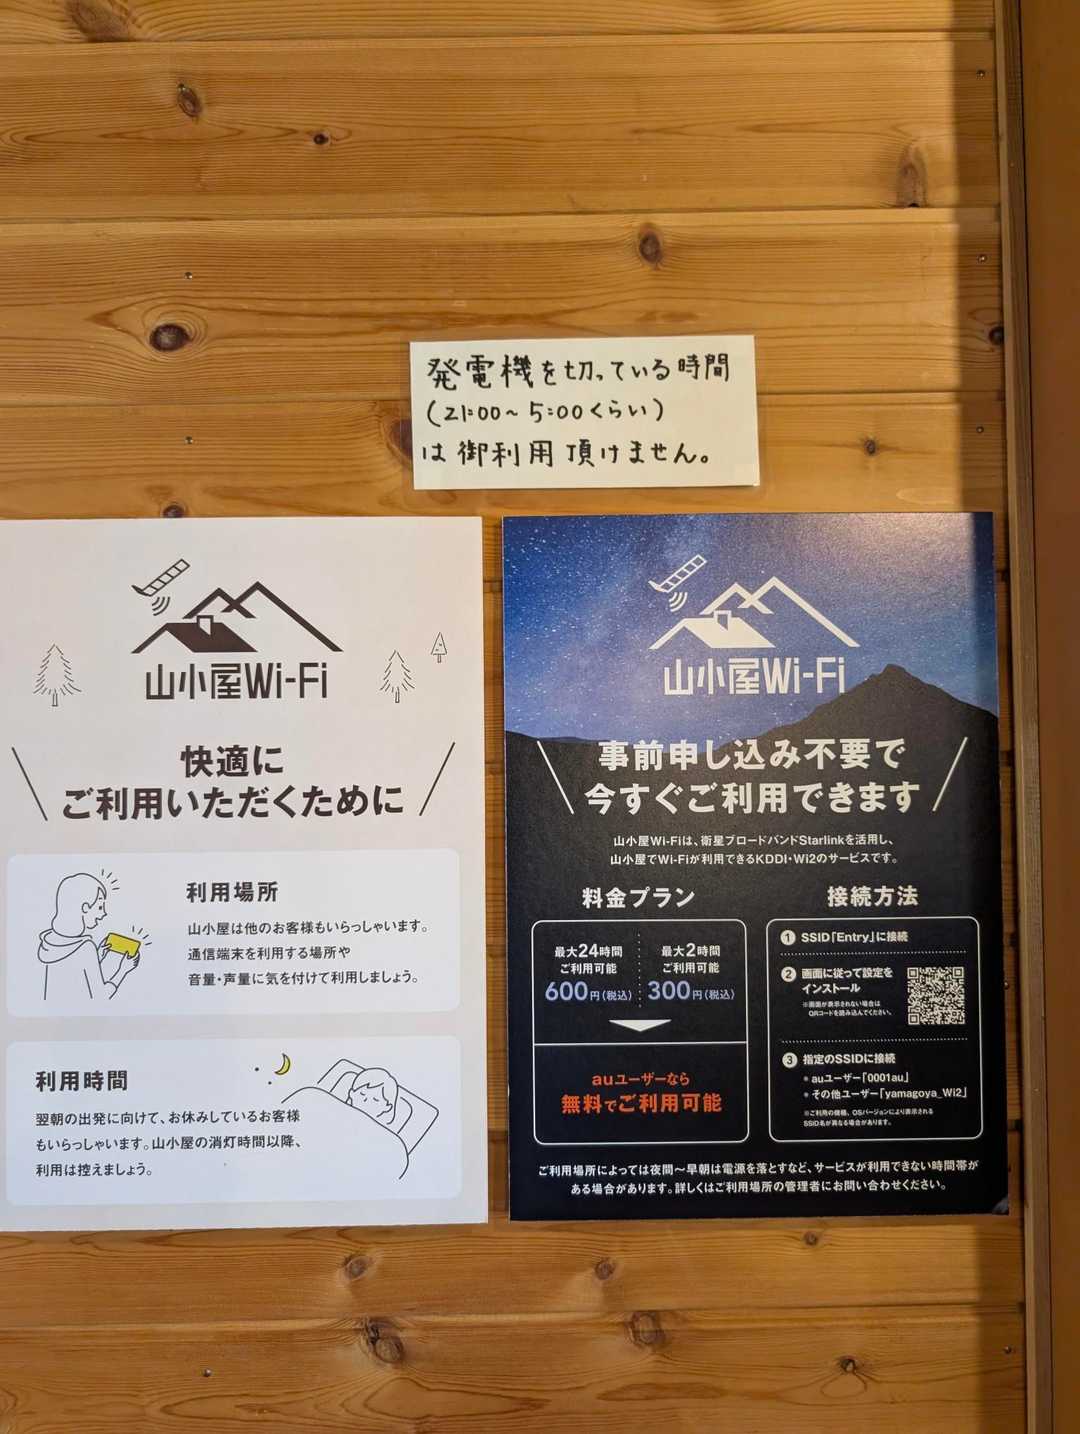 発電機を切っている時間
(21:00〜5:00くらい)
は御利用頂けません。
山小屋Wi-Fi
快適に
ご利用いただくために
利用場所
山小屋は他のお客様もいらっしゃいます。
通信端末を利用する場所や
音量・声量に気を付けて利用しましょう。
利用時間
翌朝の出発に向けて、お休みしているお客様
もいらっしゃいます。山小屋の消灯時間以降、
利用は控えましょう。
山小屋Wi-Fi
事前申し込み不要で
今すぐご利用できます
山小屋Wi-Fiは、衛星ブロードバンドStarlinkを活用し、
山小屋でWi-Fiが利用できるKDDI・Wi2のサービスです。
料金プラン
最大24時間
ご利用可能
600円(税込)
最大2時間
ご利用可能
300円(税込)
auユーザーなら
無料でご利用可能
接続方法
1 SSID「Entry」に接続
2 画面に従って設定を
インストール
※画面が表示されない場合は
QRコードを読み込んでください。
3 指定のSSIDに接続
• auユーザー「0001au」
• その他ユーザー「yamagoya_Wi2」
※ご利用の機種、OSバージョンにより表示される
SSID名が異なる場合があります。
ご利用場所によっては夜間〜早朝は電源を落とすなど、サービスが利用できない時間帯が
ある場合があります。詳しくはご利用場所の管理者にお問い合わせください。